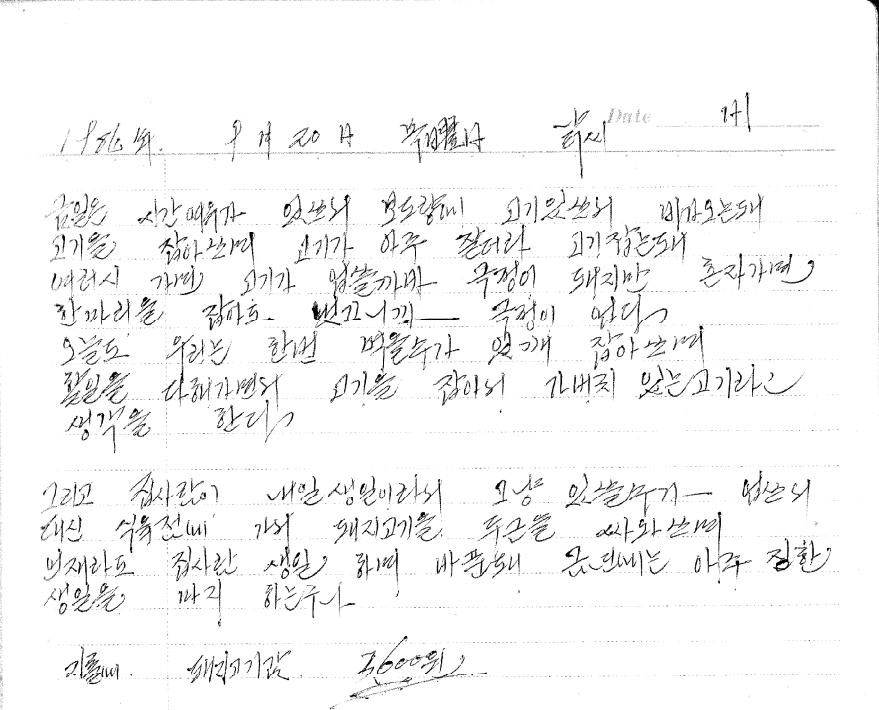 1986년. 9월 20日 曜日 날씨 Date 비
금일은 시간여유가 있쓰늬 보도랑에 고기있쓰늬 비가오는대
고기을 잡아쓰며 고기가 아주 잘더라 고기잡는대
여러시 가면 고기가 업쓸까바 극정이 돼지만 혼자가면
한마리을 잡아도 벗고니끼 극정이 없다
오늘도 우리는 한번 먹을수가 있개 잡아쓰며
할일을 다해가면늬 고기을 잡아늬 가버치 있는고기라고
생객을 한다
그리고 집사람이 내일생일이라늬 그냥 있쓸수가 업쓰늬
대신 식육전에 가늬 돼지고기을 두근을 싸와쓰며
언재라도 집사람 생일 하며 바뿐대 금년에는 아주 질한
생일을 까지 하는구나
지출에 돼지고기갑 3,600원